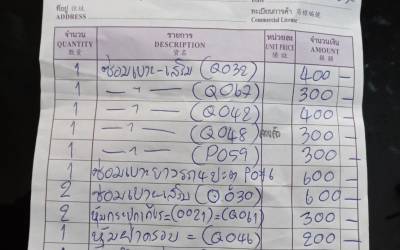 ที่อยู่
ADDRESS
ทะเบียนการค้า
Commercial License
จำนวน
QUANTITY
數量
รายการ
DESCRIPTION
貨名
หน่วยละ
UNIT PRICE
จำนวนเงิน
AMOUNT
1 ซ่อมเบาะ-เสริม (Q032) 400 -
1 — " — (Q062) 300 -
1 — " — (Q042) 400 -
1 — " — (Q048) 300 -
1 — " — (P059) 300 -
1 ซ่อมเบาะยาวรถ4ประตู P076 600 -
2 ซ่อมเบาะ-เสริม (Q.030) 600 -
2 หุ้มกระปุกเกียร์=(0021)=(Q061) 300 -
1 หุ้มฝาครอบ = (Q046) 200 -